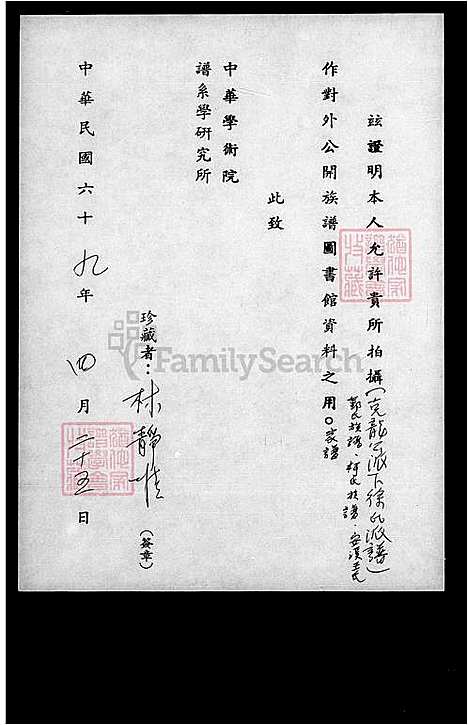 玆證明本人允許貴所拍攝(克龍公派下徐氏派譜)
鄭氏族譜.柯氏族譜.安溪王氏
家譜
作對外公開族譜圖書館資料之用。
此致
中華學術院
譜系學研究所
珍藏者:林靜
(簽章)
中華民國六十九年四月二十五日
FamilySearch